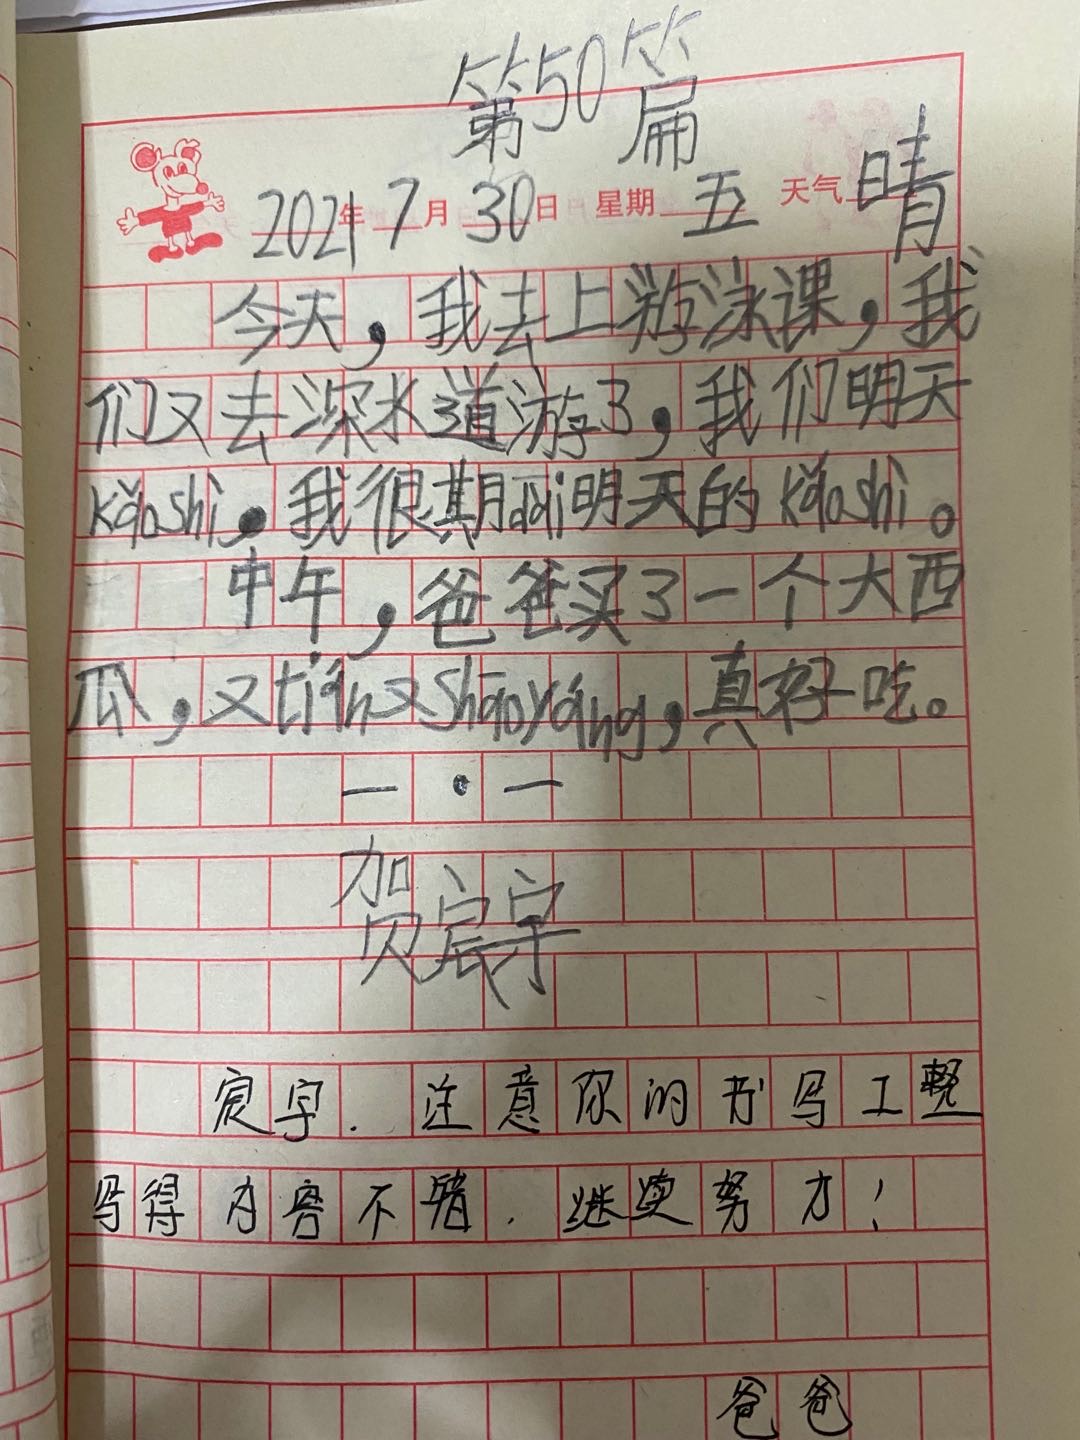 第50篇
2021年7月30日 星期五 天气晴
今天，我去上游泳课，我
们又去深水道游了，我们明天
kǎoshì。我很期dài明天的kǎoshì。
中午，爸爸买了一个大西
瓜，又tián又shāoyáng，真好吃。
一·一
贺宸宇
宸宇．注意你的书写工整
写得内容不错．继续努力！
爸爸